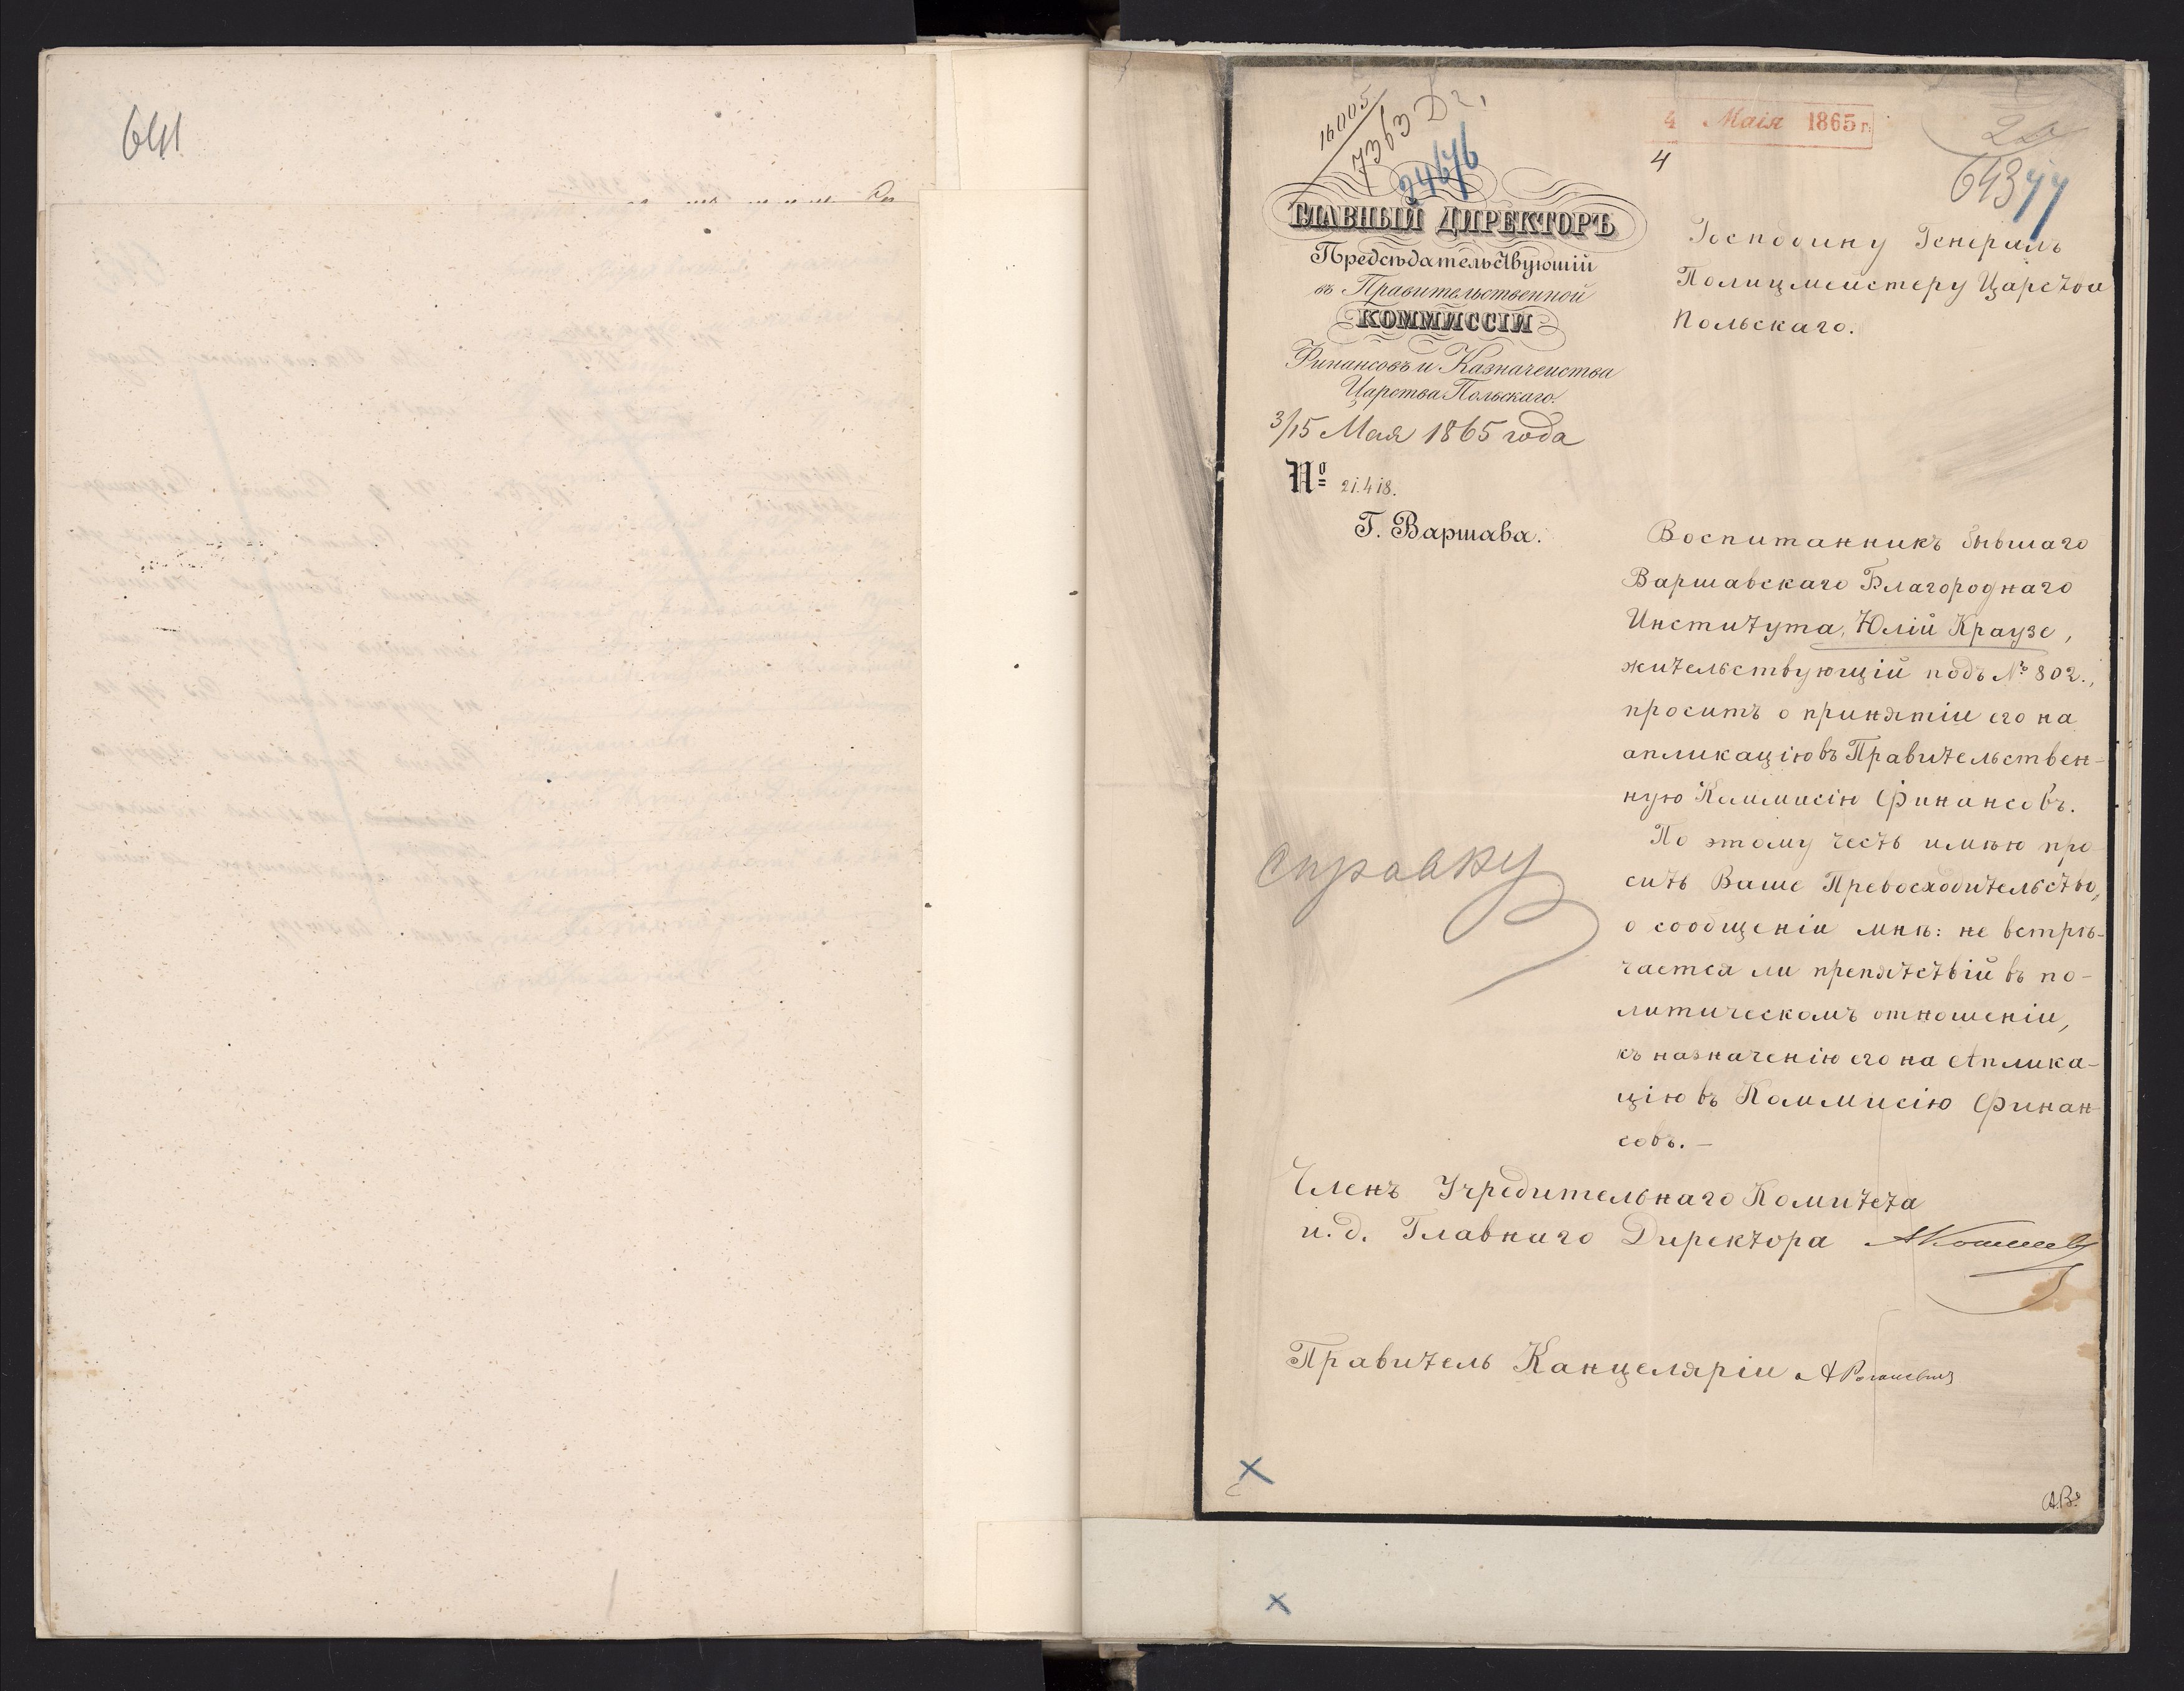 641
16005
7363 Дг,
24676
4 Маія 1865 г.
4
643
77
ГЛАВНЫЙ ДИРЕКТОРЪ
Предсѣдательствующій
въ Правительственной
КОММИССІИ
Финансовъ и Казначейства
Царства Польскаго.
3/15 Мая 1865 года
№ 21.418.
Г. Варшава.
Господину Генералъ
Полицмейстеру Царства
Польскаго.
Воспитанникъ бывшаго
Варшавскаго Благороднаго
Института, Юлій Краузе,
жительствующій подъ № 802.,
проситъ о принятіи его на
апликацію въ Правительствен-
ную Коммисію Финансовъ.
По этому честь имѣю про
сить Ваше Превосходительство,
о сообщеніи мнѣ: не встрѣ-
чается ли препятствій въ по-
литическомъ отношеніи,
къ назначенію его на Аплика-
цію въ Коммисію Финан
совъ. —
справку
Членъ Учредительнаго Комитета
и. д. Главнаго Директора АКошелев
Правитель Канцеляріи А
х
А.В.
х